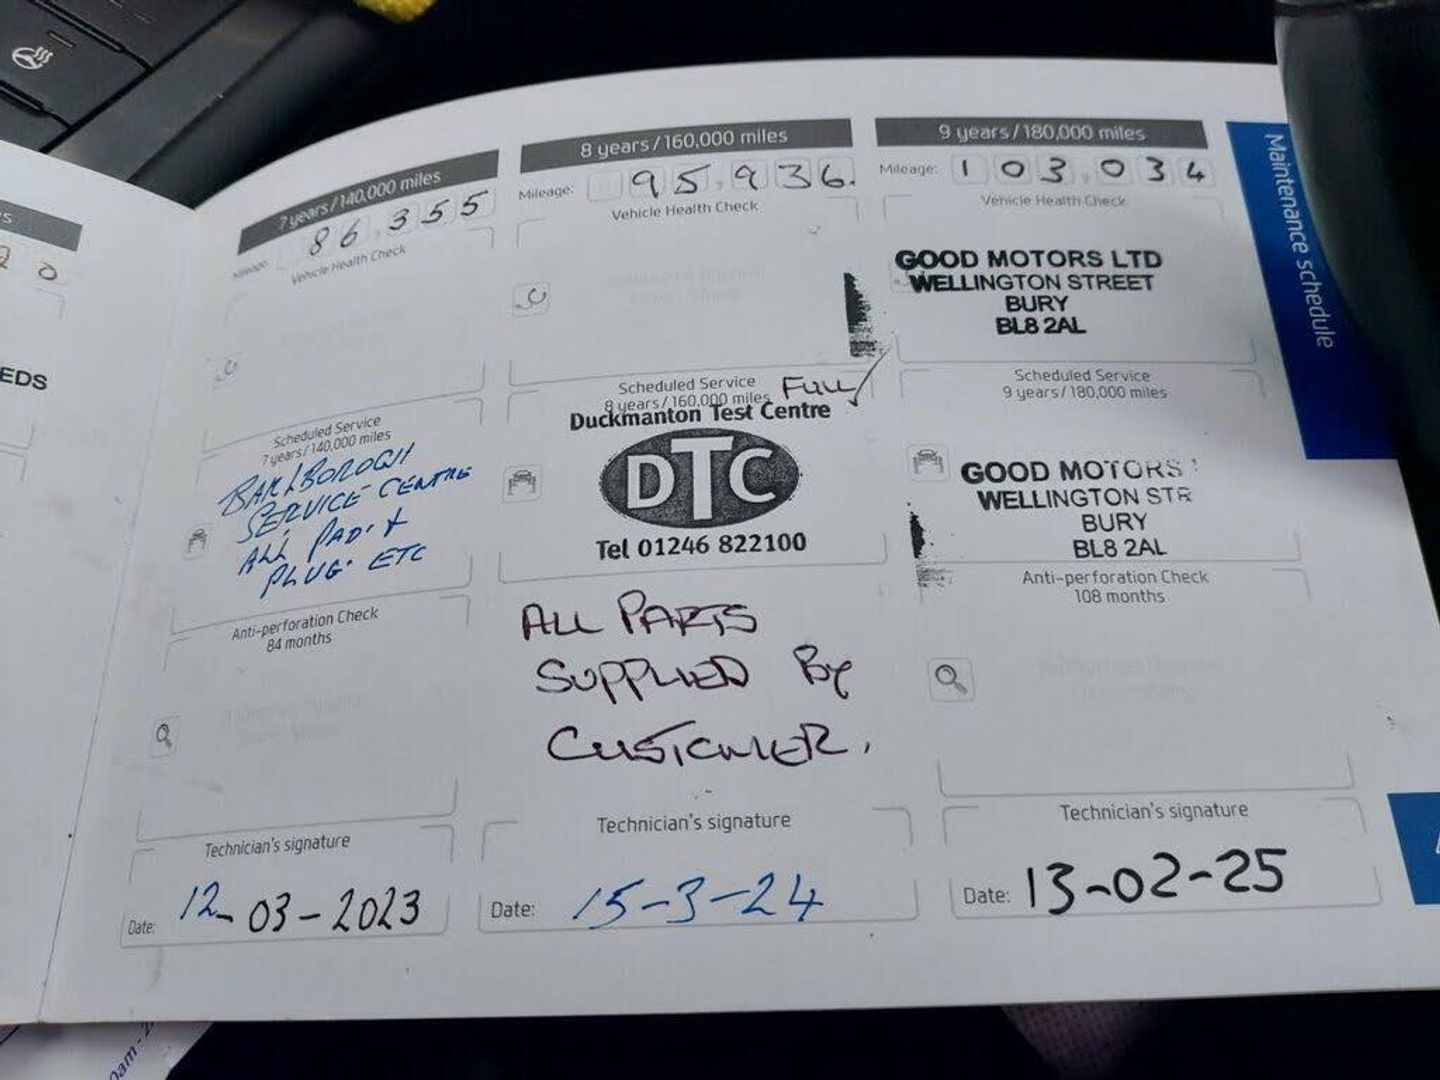 s
2 0
EDS
7 years/140,000 miles
Mileage: 86,355
Vehicle Health Check
Scheduled Service
7 years/140,000 miles
BARLBOROGH
SERVICE CENTRE
ALL PAD'S +
PLUG' ETC
Anti-perforation Check
84 months
Technician's signature
Date: 12-03-2023
8 years/160,000 miles
Mileage: 95,936.
Vehicle Health Check
Scheduled Service FULL
8 years/160,000 miles
Duckmanton Test Centre
DTC
Tel 01246 822100
ALL PARTS
SUPPLIED By
CUSTOMER.
Technician's signature
Date: 15-3-24
9 years/180,000 miles
Mileage: 103,034
Vehicle Health Check
GOOD MOTORS LTD
WELLINGTON STREET
BURY
BL8 2AL
Scheduled Service
9 years/180,000 miles
GOOD MOTORS
WELLINGTON STR
BURY
BL8 2AL
Anti-perforation Check
108 months
Technician's signature
Date: 13-02-25
Maintenance schedule
0am - 2